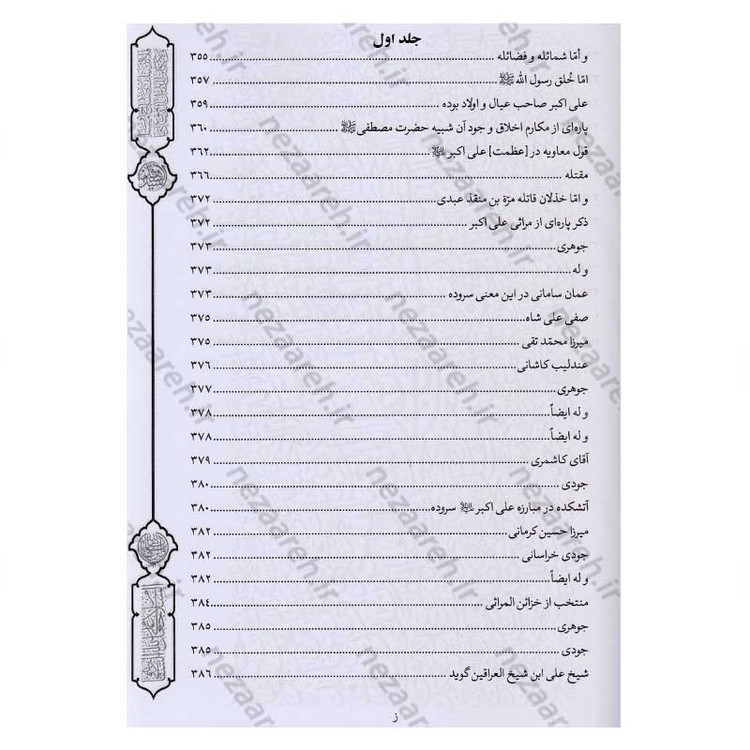 جلد اول
و أمّا شمائله و فضائله ... ۳۵۵
امّا خُلق رسول الله ﷺ ... ۳۵۷
علی اکبر صاحب عیال و اولاد بوده ... ۳۵۹
پاره‌ای از مکارم اخلاق و جود آن شبیه حضرت مصطفی ﷺ ... ۳۶۰
قول معاویه در [عظمت] علی اکبر ... ۳۶۲
مقتله ... ۳۶۶
و امّا خذلان قاتله مرّة بن منقذ عبدی ... ۳۷۲
ذکر پاره‌ای از مراثی علی اکبر ... ۳۷۲
جوهری ... ۳۷۳
و له ... ۳۷۳
عمان سامانی در این معنی سروده ... ۳۷۳
صفی علی شاه ... ۳۷۵
میرزا محمّد تقی ... ۳۷۵
عندلیب کاشانی ... ۳۷۶
جوهری ... ۳۷۷
و له ایضاً ... ۳۷۸
و له ایضاً ... ۳۷۸
آقای کاشمری ... ۳۷۹
جودی ... ۳۸۰
آتشکده در مبارزه علی اکبر سروده ... ۳۸۰
میرزا حسین کرمانی ... ۳۸۲
جودی خراسانی ... ۳۸۲
و له ایضاً ... ۳۸۲
منتخب از خزائن المراثی ... ۳۸۴
جوهری ... ۳۸۵
جودی ... ۳۸۵
شیخ علی ابن شیخ العراقین گوید ... ۳۸۶
ز
nezaareh.ir